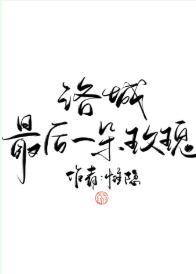 洛城
最后一朵玫瑰
作者:惟隐